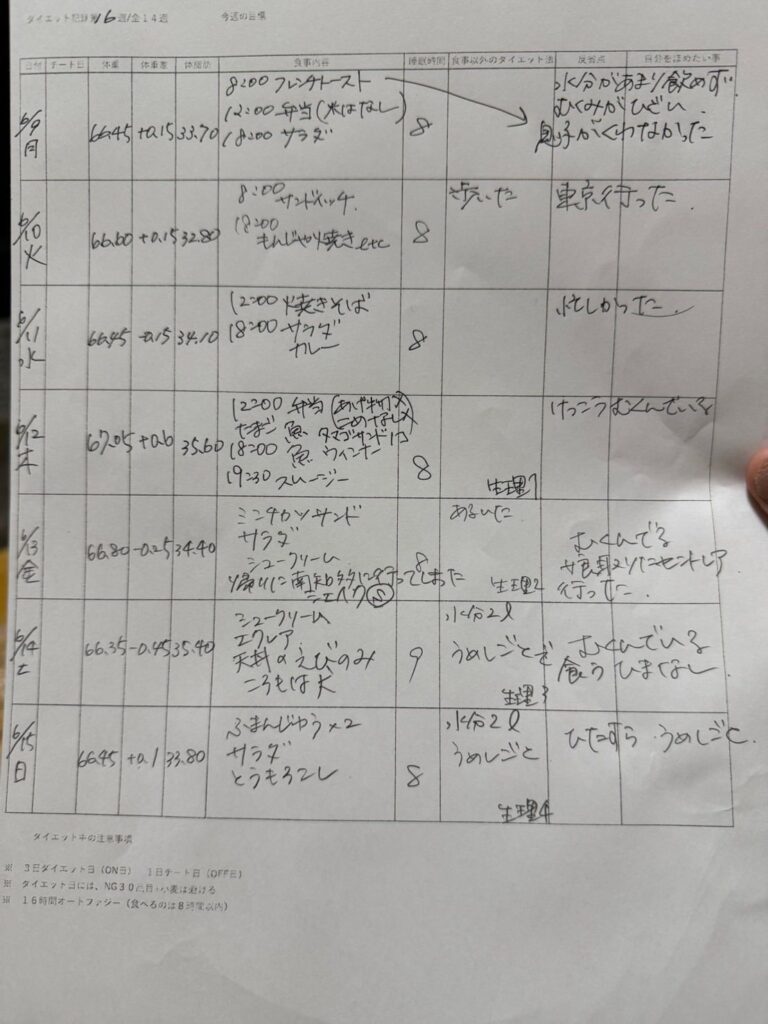 ダイエット記録第16週/全14週 今週の目標
日付 チート日 体重 体重差 体脂肪 食事内容 睡眠時間 食事以外のダイエット法 反省点 自分をほめたい事
6/9 月 66.45 +0.15 33.70
8:00 フレンチトースト
12:00 弁当(米はなし)
18:00 サラダ
8
水分があまり飲めず、
むくみがひどい、
息子がくわなかった
6/10 火 66.60 +0.15 32.80
8:00 サンドイッチ
18:00
もんじゃ焼きetc
8
歩いた
東京行った
6/11 水 66.45 -0.15 34.10
12:00 焼きそば
18:00 サラダ
カレー
8
忙しかった
6/12 木 67.05 +0.6 35.60
12:00 弁当
たまご 魚 タマゴサンド1コ
18:00 魚 ウィンナー
19:30 スムージー
8
生理1
けっこうむくんでいる
6/13 金 66.80 -0.25 34.40
ミンチカツサンド
サラダ
シュークリーム
帰りに南知多に行ってしまった
シェイク S
8
あるいた
生理2
むくんでる
セントレア
行った
6/14 土 66.35 -0.45 35.40
シュークリーム
エクレア
天丼のえびのみ
ころもは犬
9
水分2l
うめしごとで
生理3
むくんでいる
食うひまなし
6/15 日 66.45 +0.1 33.80
ふまんじゅう×2
サラダ
とうもろこし
8
水分2l
うめしごと
生理4
ひたすら うめしごと
ダイエット中の注意事項
※ 3日ダイエット日(ON日) 1日チート日(OFF日)
※ ダイエット日には、NG30品目・小麦は避ける
※ 16時間オートファジー(食べるのは8時間以内)